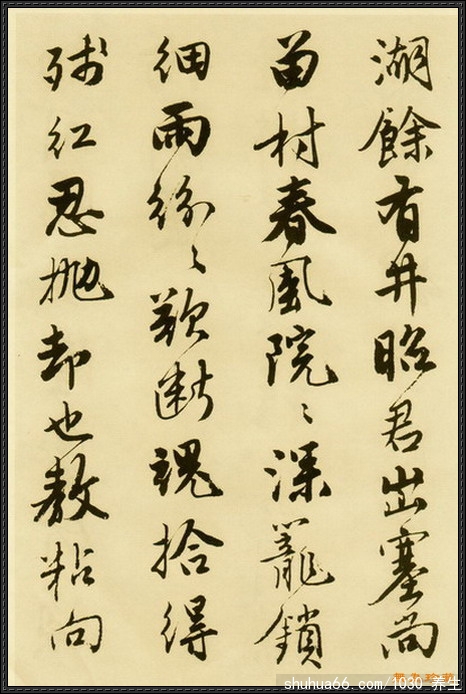 湖餘有井昭君出塞尚
留村春風院〻深籠鎖
細雨紛〻欲断魂拾得
残紅忍抛却也教粘向
shuhua66.com/1030_养生